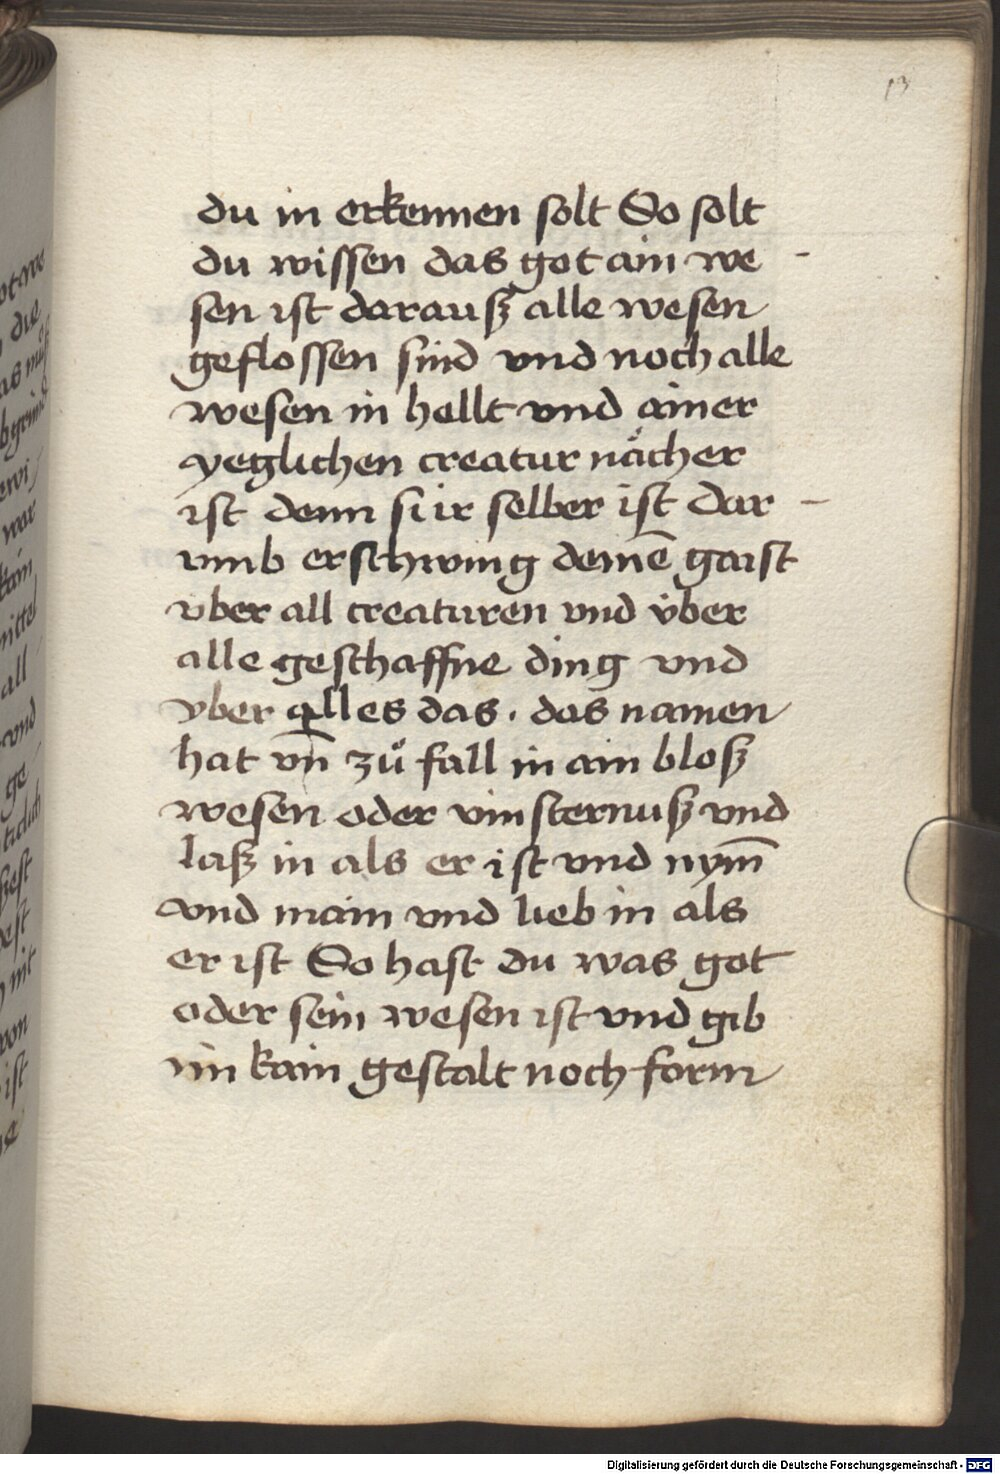 13
du in erkennen solt So solt
du wissen das got ain we -
sen ist darausz alle wesen
geflossen sind vnd noch alle
wesen in hellt vnd ainer
yeglichen creatur nächer
ist denn si ir selber ist dar -
vmb erschwing deinē gaist
vber all creaturen vnd vber
alle geschaffne ding vnd
vber alles das . das namen
hat vn̄ zůfall in ain blosz
wesen oder vinsternusz vnd
lasz in als er ist vnd nym̄
vnd main vnd lieb in als
er ist So hast du was got
oder sein wesen ist vnd gib
im kain gestalt noch form
Digitalisierung gefördert durch die Deutsche Forschungsgemeinschaft - DFG